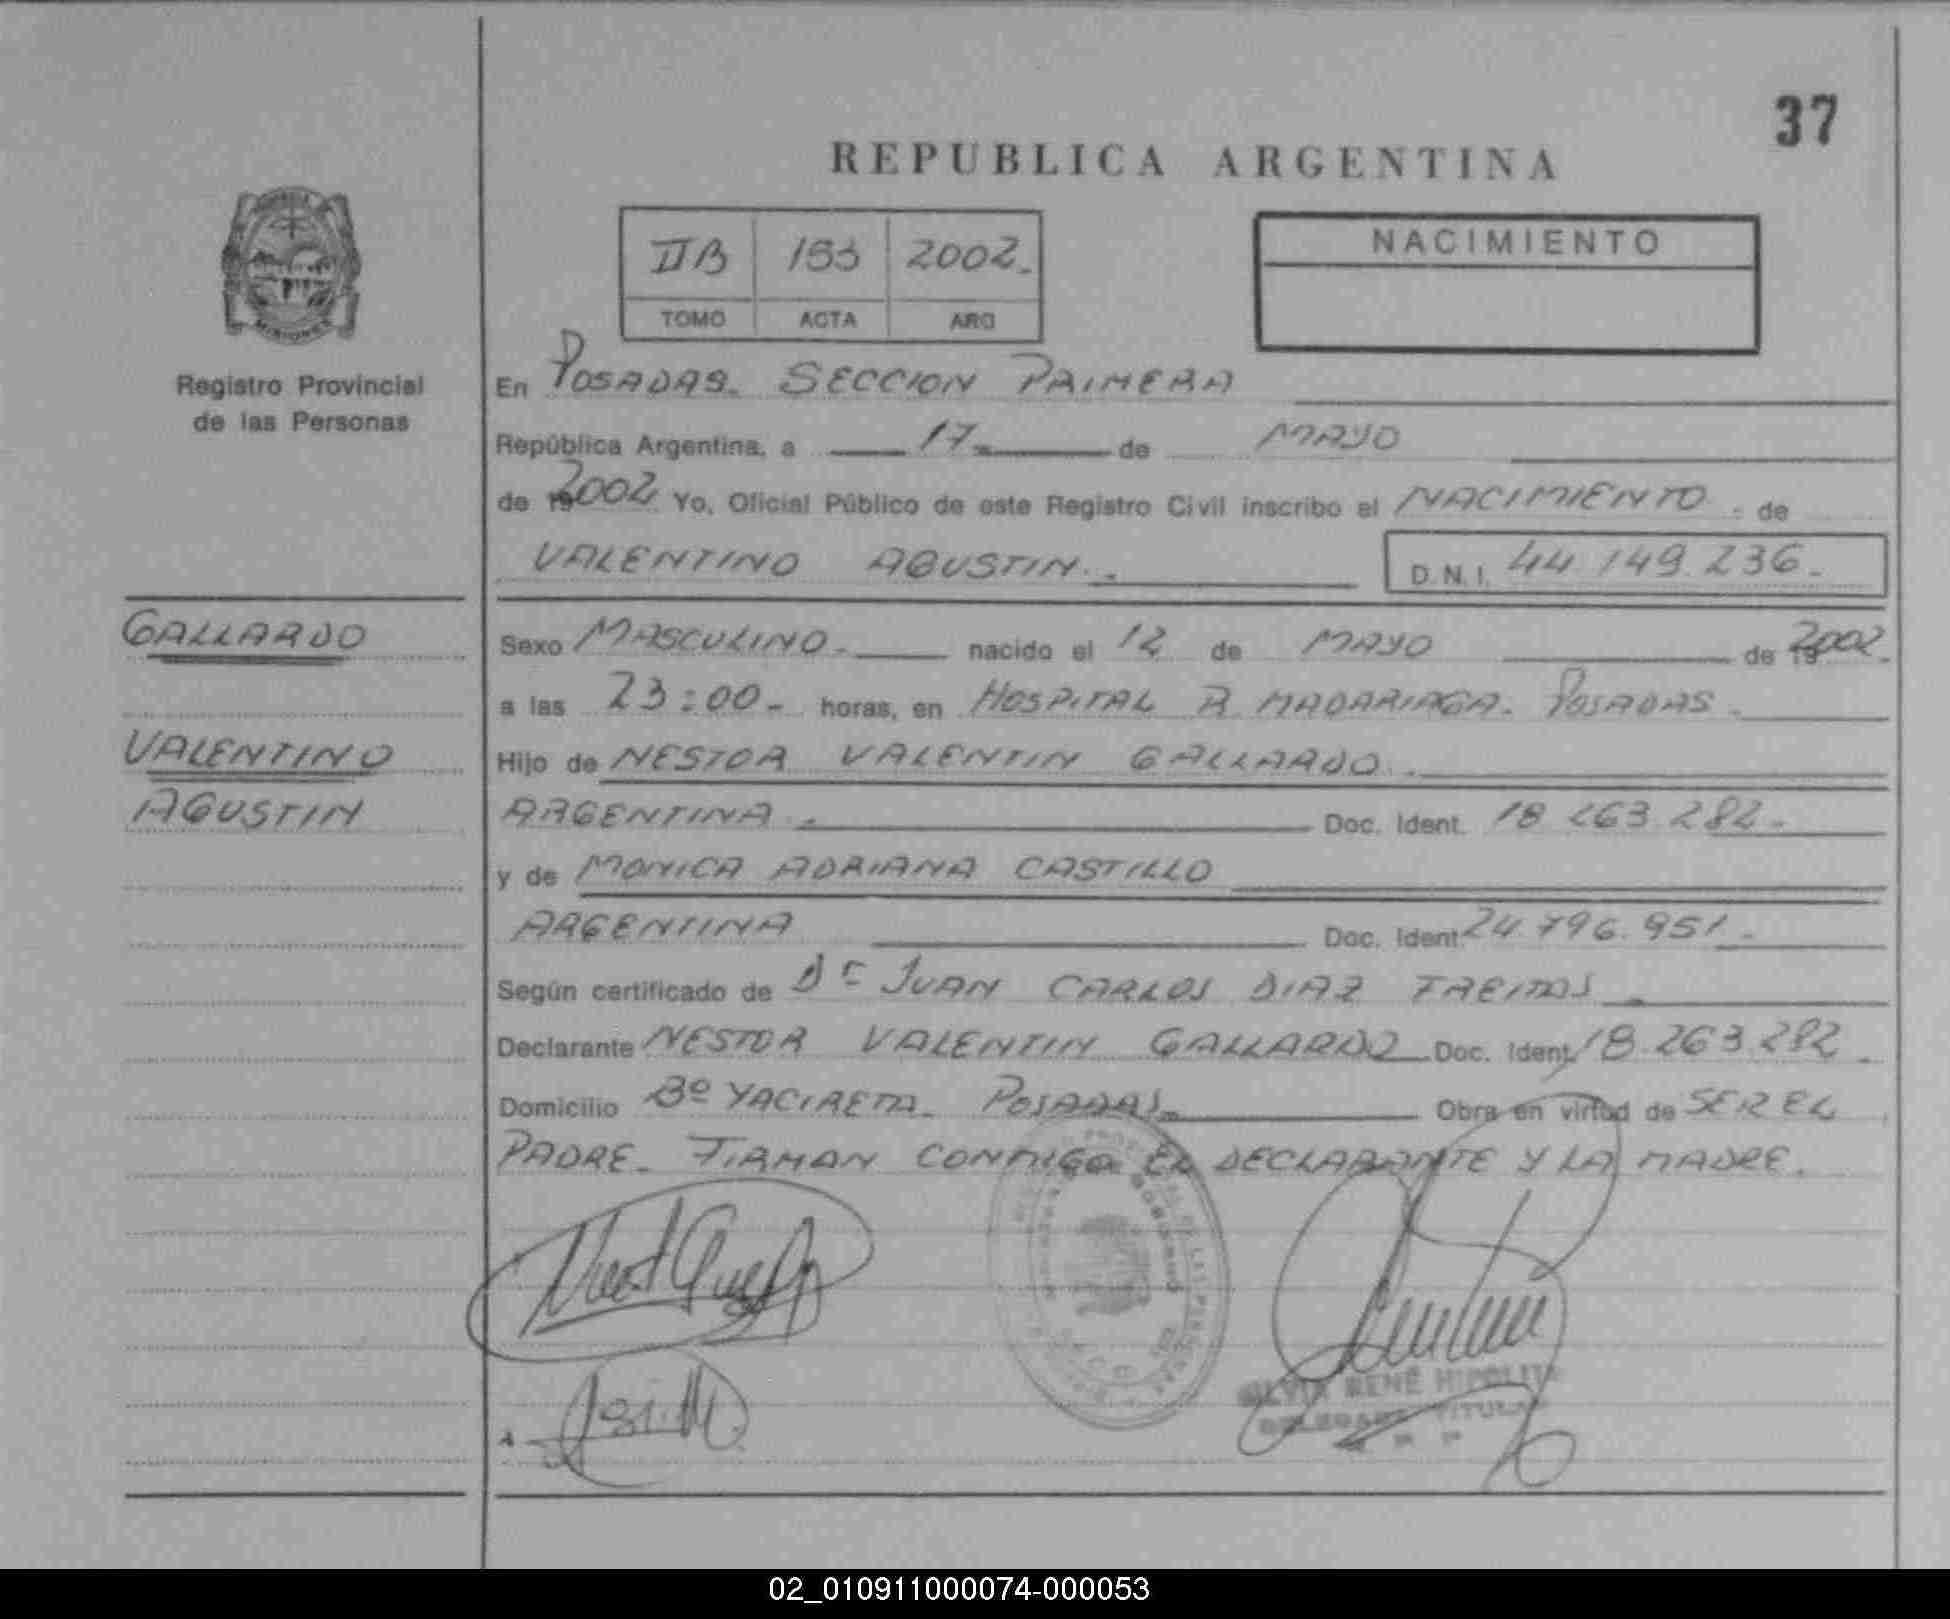 37
REPUBLICA ARGENTINA
IIB 153 2002.
TOMO ACTA AÑO
NACIMIENTO
MISIONES
Registro Provincial
de las Personas
En POSADAS. SECCION PRIMERA
República Argentina, a 17 de MAYO
de 2002 Yo, Oficial Público de este Registro Civil inscribo el NACIMIENTO de
VALENTINO AGUSTIN. D.N.I. 44.149.236.
GALLARDO
Sexo MASCULINO. nacido el 12 de MAYO de 2002.
a las 23:00- horas, en HOSPITAL R MADARIAGA. POSADAS.
VALENTINO
Hijo de NESTOR VALENTIN GALLARDO.
AGUSTIN
ARGENTINA. Doc. Ident. 18 263 282.
y de MONICA ADRIANA CASTILLO
ARGENTINA Doc. Ident 24.796.951.
Según certificado de Dr JUAN CARLOS DIAZ FREITAS.
Declarante NESTOR VALENTIN GALLARDO Doc. Ident 18.263.282.
Domicilio Bº YACIRETA. POSADAS. Obra en virtud de SER EL
PADRE. FIRMAN CONMIGO EL DECLARANTE Y LA MADRE.
RENÉ HIPOLIT
TITULAR
02_010911000074-000053